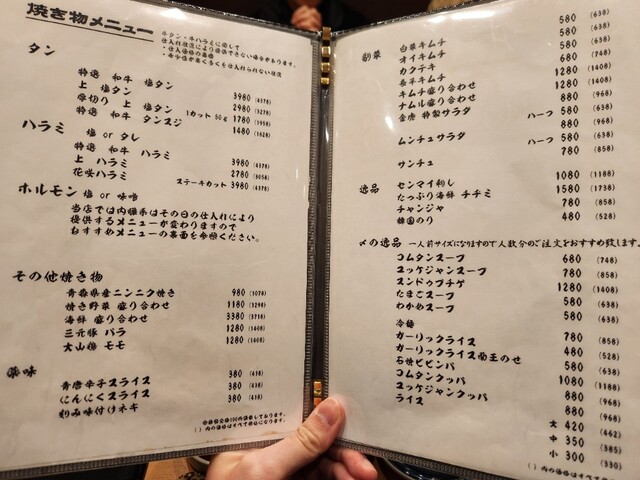 焼き物メニュー
牛タン・牛ハラミに関して
タン
特選 和牛 塩タン 3980 (4378)
上 塩タン 2980 (3278)
厚切り 上 塩タン 1カット 50g 1780 (1958)
特選 和牛 タンスジ 1480 (1628)
ハラミ 塩 or タレ
特選 和牛 ハラミ 3980 (4378)
上 ハラミ 2780 (3058)
花咲ハラミ ステーキカット 3980 (4378)
ホルモン 塩 or 味噌
当店では内臓系はその日の仕入れにより
提供するメニューが変わりますので
おすすめメニューの裏面を参照ください。
その他焼き物
青森県産ニンニク焼き 980 (1078)
焼き野菜 盛り合わせ 1180 (1298)
海鮮 盛り合わせ 3380 (3718)
三元豚 バラ 1280 (1408)
大山鶏 モモ 1280 (1408)
薬味
青唐辛子スライス 380 (418)
にんにくスライス 380 (418)
刻み味付けネギ 380 (418)
( )内の価格はすべて税込になります。
副菜
白菜キムチ 580 (638)
オイキムチ 580 (638)
カクテキ 680 (748)
長芋キムチ 1280 (1408)
キムチ盛り合わせ 1280 (1408)
ナムル盛り合わせ 880 (968)
金虎 特製サラダ ハーフ 580 (638)
880 (968)
ムンチュサラダ ハーフ 580 (638)
780 (858)
サンチュ
逸品
センマイ刺し 1080 (1188)
たっぷり海鮮 チヂミ 1580 (1738)
チャンジャ 780 (858)
韓国のり 480 (528)
〆の逸品 一人前サイズになりますので人数分のご注文をおすすめ致します。
コムタンスープ 680 (748)
ユッケジャンスープ 780 (858)
スンドゥブチゲ 1280 (1408)
たまごスープ 580 (638)
わかめスープ 580 (638)
冷麺
ガーリックライス 780 (858)
ガーリックライス 卵のせ 480 (528)
石焼ビビンバ 580 (638)
コムタンクッパ 1080 (1188)
ユッケジャンクッパ 880 (968)
ライス 880 (968)
大 420 (462)
中 350 (385)
小 300 (330)